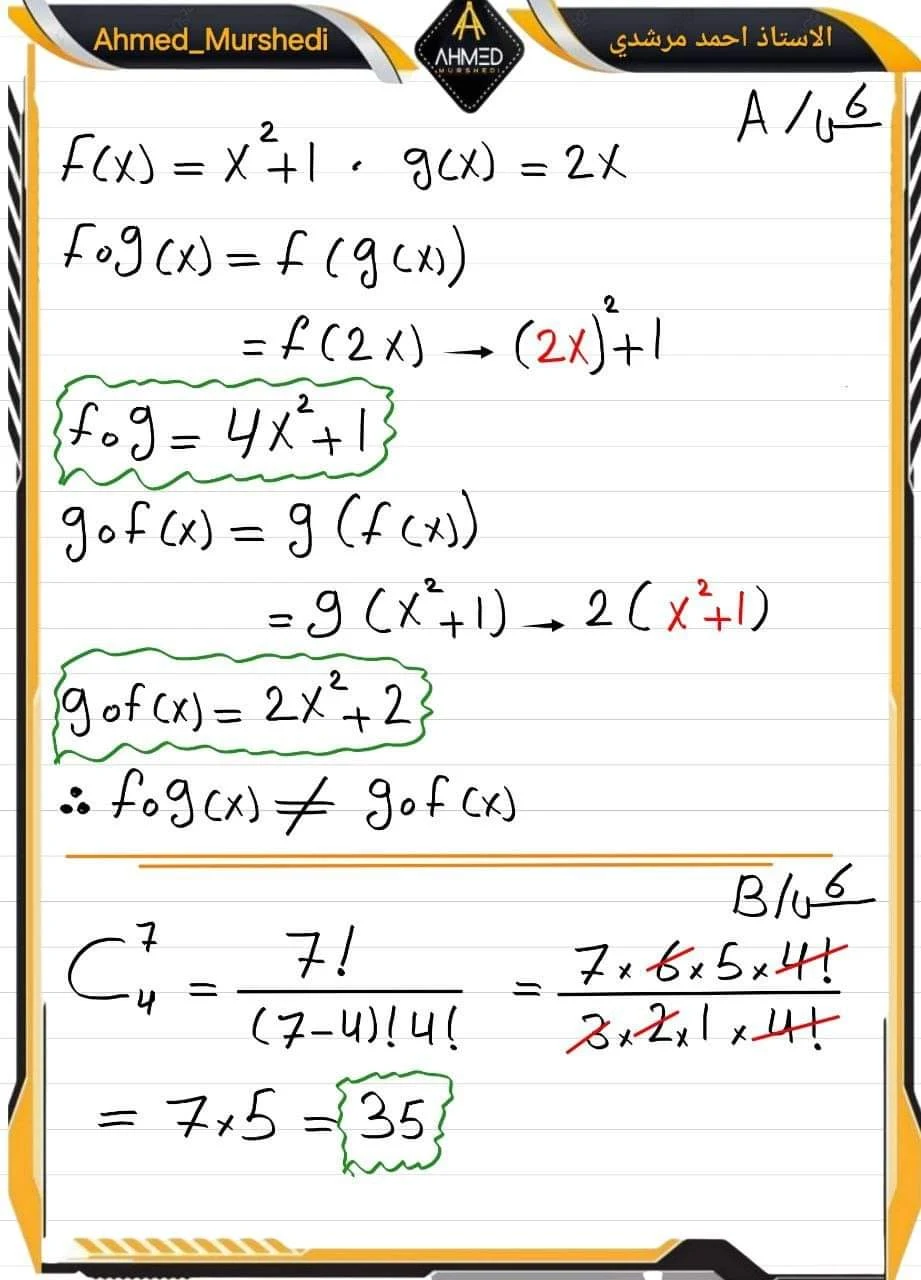 Ahmed_Murshedi
AHMED
MURSHEDI
الاستاذ احمد مرشدي
A / س6
f(x) = x²+1 , g(x) = 2x
fog(x) = f(g(x))
= f(2x) → (2x)²+1
fog = 4x²+1
gof(x) = g(f(x))
= g(x²+1) → 2(x²+1)
gof(x) = 2x²+2
∴ fog(x) ≠ gof(x)
B/س6
C⁷₄ = 7! / (7-4)!4! = 7×6×5×4! / 3×2×1×4!
= 7×5 = 35